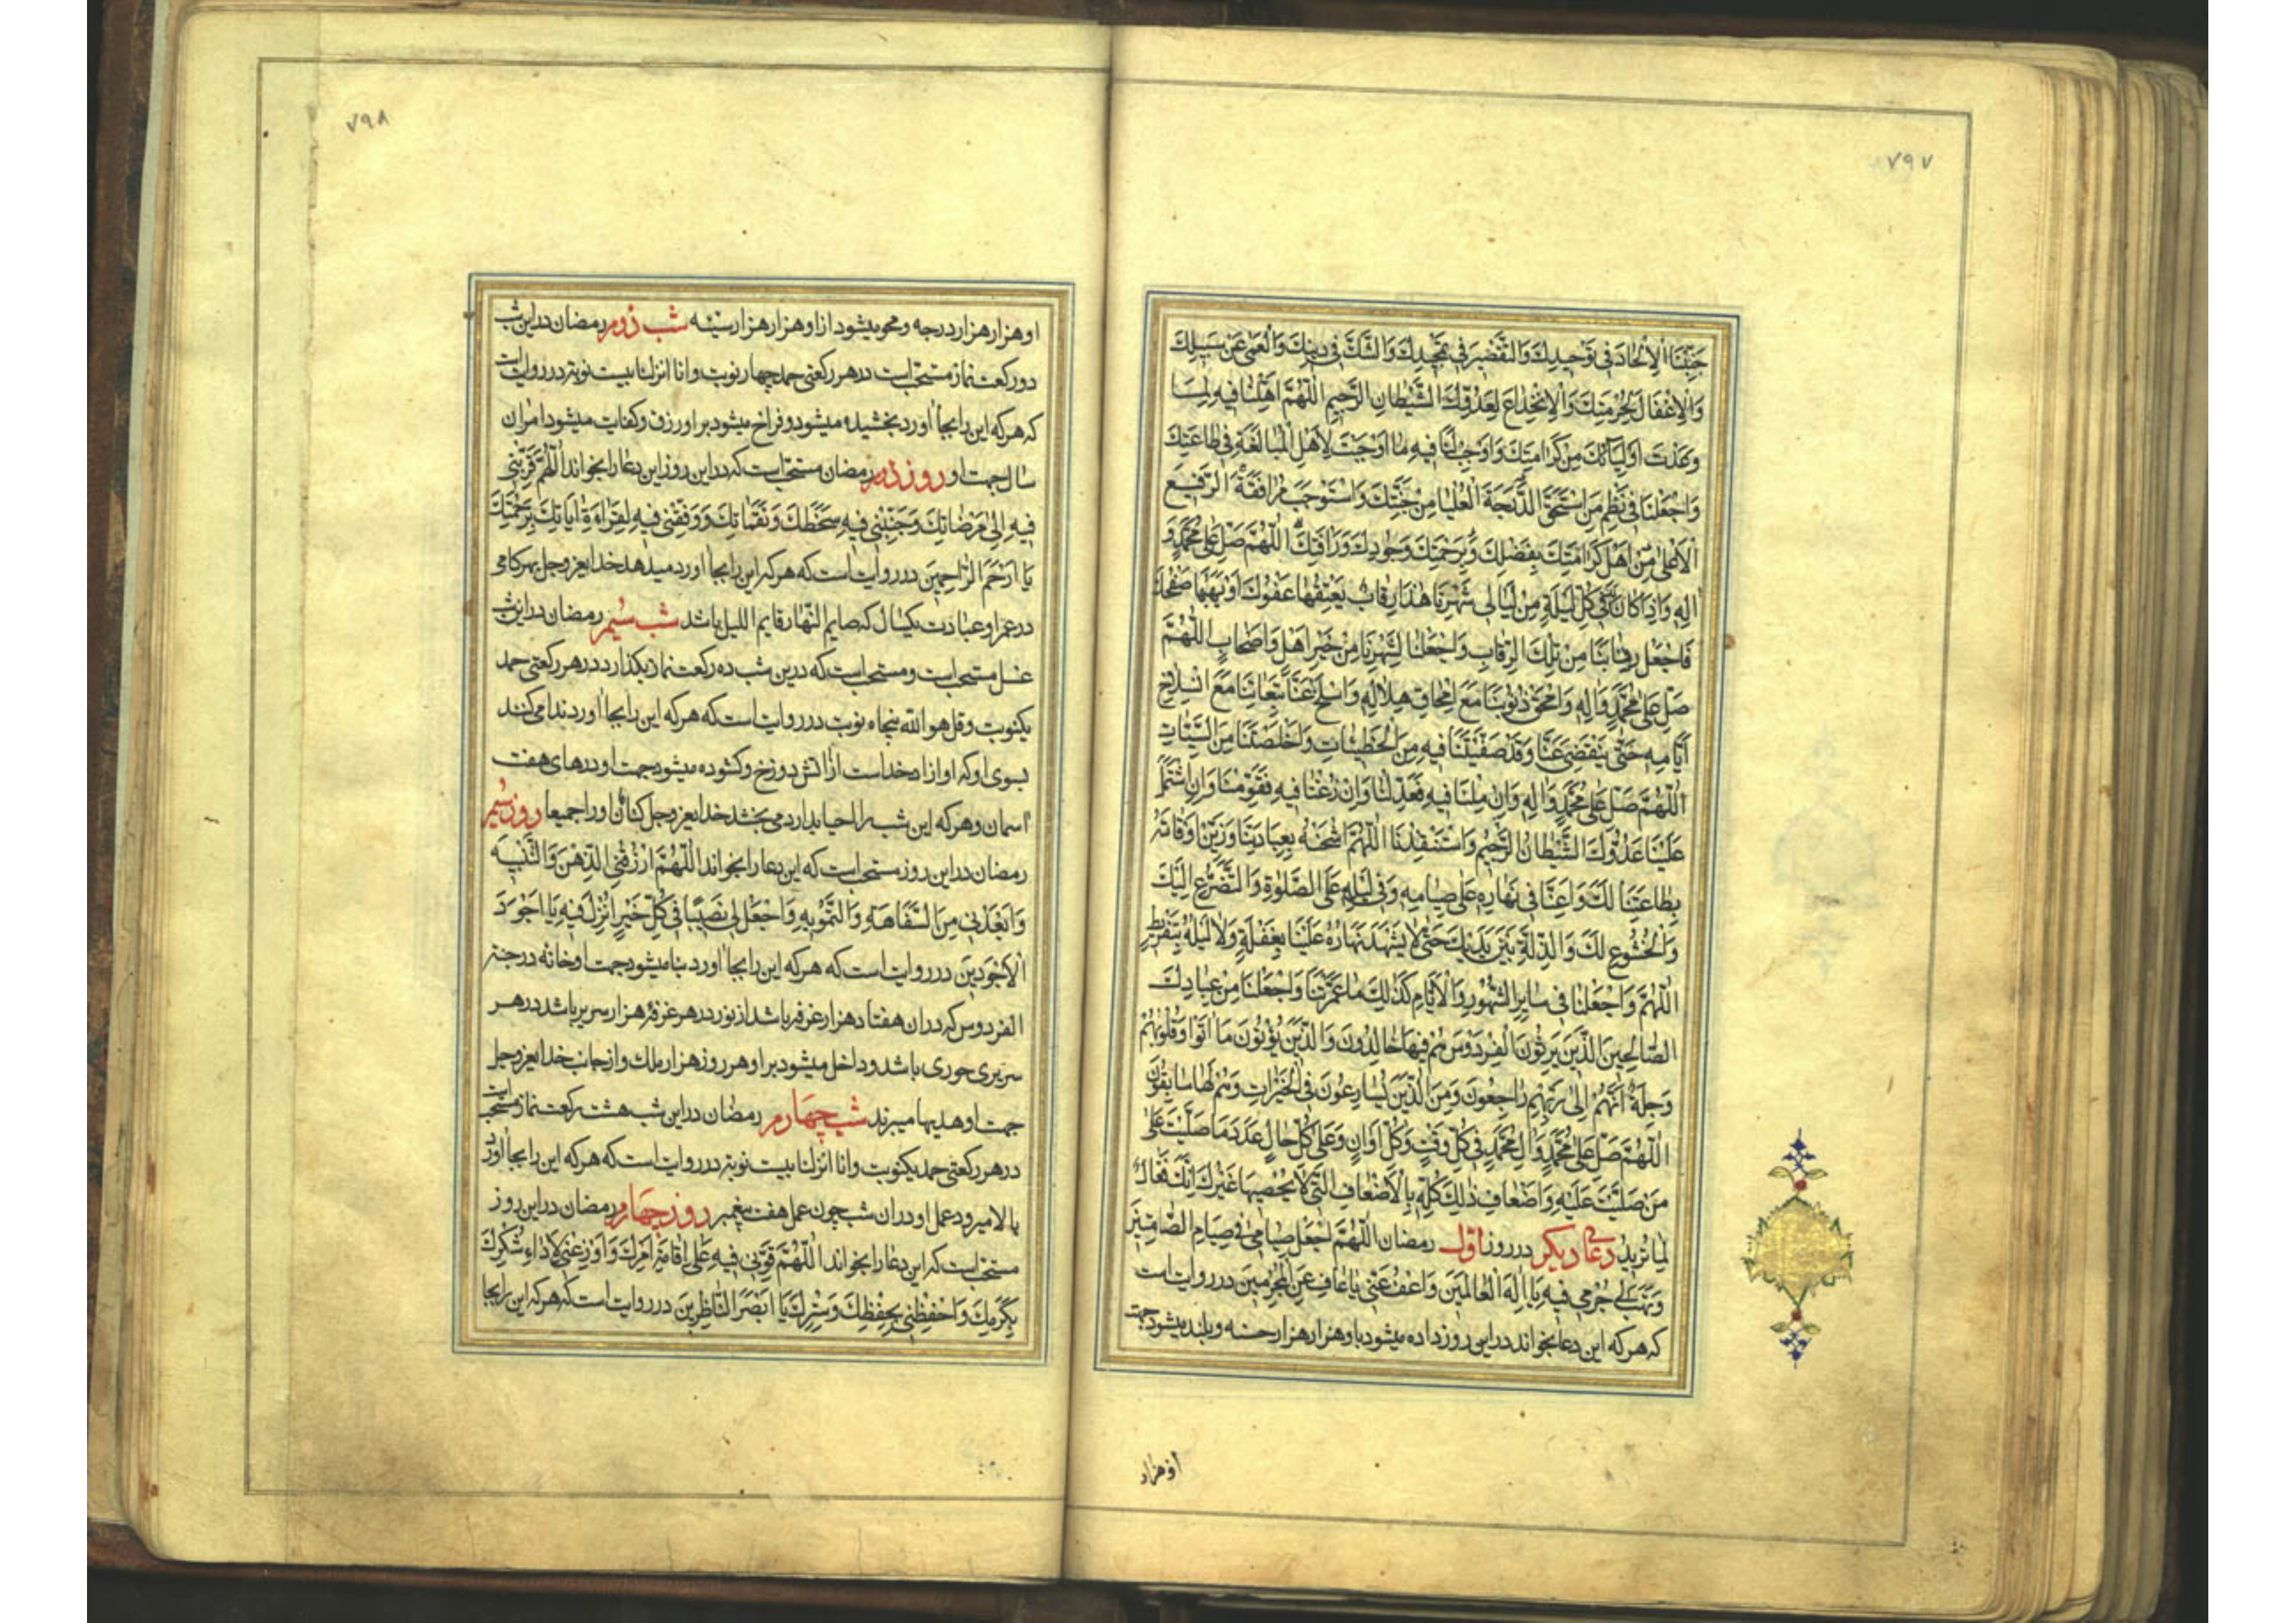 ۷۹۷
جَنِّبْنَا الْاِلْحَادَ فی تَوْحیدِكَ وَالتَّقْصیرَ فی تَمْجیدِكَ وَالشَّكَّ فی دینِكَ وَالْعَمٰی عَنْ سَبیلِكَ
وَالْاِغْفَالَ لِحُرْمَتِكَ وَالْاِنْخِدَاعَ لِعَدُوِّكَ الشَّیْطَانِ الرَّجیمِ اَللّٰهُمَّ اَهِّلْنَا فیهِ لِمَا
وَعَدْتَ اَوْلِیَآئَكَ مِنْ كَرَامَتِكَ وَاَوْجِبْ لَنَا فیهِ مَا اَوْجَبْتَ لِاَهْلِ الْمُبَالَغَةِ فی طَاعَتِكَ
وَاجْعَلْنَا فی نَظْمِ مَنِ اسْتَحَقَّ الدَّرَجَةَ الْعُلْیَا مِنْ جَنَّتِكَ وَاسْتَوْجَبَ مُرَافَقَةَ الرَّفیعِ
الْاَعْلٰی مِنْ اَهْلِ كَرَامَتِكَ بِفَضْلِكَ وَبِرَحْمَتِكَ وَجُودِكَ وَرَاْفَتِكَ اَللّٰهُمَّ صَلِّ عَلٰی مُحَمَّدٍ وَ
اٰلِهِ وَاِذَا كَانَ لَكَ فی كُلِّ لَیْلَةٍ مِنْ لَیَالی شَهْرِنَا هٰذَا رِقَابٌ یُعْتِقُهَا عَفْوُكَ اَوْ یَهَبُهَا صَفْحُكَ
فَاجْعَلْ رِقَابَنَا مِنْ تِلْكَ الرِّقَابِ وَاجْعَلْنَا لِشَهْرِنَا مِنْ خَیْرِ اَهْلٍ وَاَصْحَابٍ اَللّٰهُمَّ
صَلِّ عَلٰی مُحَمَّدٍ وَاٰلِهِ وَامْحَقْ ذُنُوبَنَا مَعَ اِمْحَاقِ هِلَالِهِ وَاسْلَخْ عَنَّا تَبِعَاتِنَا مَعَ انْسِلَاخِ
اَیَّامِهِ حَتّٰی یَنْقَضِیَ عَنَّا وَقَدْ صَفَّیْتَنَا فیهِ مِنَ الْخَطیئَاتِ وَاَخْلَصْتَنَا مِنَ السَّیِّئَاتِ
اَللّٰهُمَّ صَلِّ عَلٰی مُحَمَّدٍ وَاٰلِهِ وَاِنْ مِلْنَا فیهِ فَعَدِّلْنَا وَاِنْ زُغْنَا فیهِ فَقَوِّمْنَا وَاِنِ اشْتَمَلَ
عَلَیْنَا عَدُوُّكَ الشَّیْطَانُ الرَّجیمُ فَاسْتَنْقِذْنَا اَللّٰهُمَّ اشْحَنْهُ بِعِبَادَتِنَا وَزَیِّنْ اَوْقَاتَهُ
بِطَاعَتِنَا لَكَ وَاَعِنَّا فی نَهَارِهِ عَلٰی صِیَامِهِ وَفی لَیْلِهِ عَلَی الصَّلٰوةِ وَالتَّضَرُّعِ اِلَیْكَ
وَالْخُشُوعِ لَكَ وَالذِّلَّةِ بَیْنَ یَدَیْكَ حَتّٰی لَا یَشْهَدَ نَهَارُهُ عَلَیْنَا بِغَفْلَةٍ وَلَا لَیْلُهُ بِتَفْریطٍ
اَللّٰهُمَّ وَاجْعَلْنَا فی سَایِرِ الشُّهُورِ وَالْاَیَّامِ كَذٰلِكَ مَا عَمَّرْتَنَا وَاجْعَلْنَا مِنْ عِبَادِكَ
الصَّالِحینَ الَّذینَ یَرِثُونَ الْفِرْدَوْسَ هُمْ فیهَا خَالِدُونَ وَالَّذینَ یُؤْتُونَ مَا اٰتَوْا وَقُلُوبُهُمْ
وَجِلَةٌ اَنَّهُمْ اِلٰی رَبِّهِمْ رَاجِعُونَ وَمِنَ الَّذینَ یُسَارِعُونَ فی الْخَیْرَاتِ وَهُمْ لَهَا سَابِقُونَ
اَللّٰهُمَّ صَلِّ عَلٰی مُحَمَّدٍ وَاٰلِ مُحَمَّدٍ فی كُلِّ وَقْتٍ وَكُلِّ اَوَانٍ وَعَلٰی كُلِّ حَالٍ عَدَدَ مَا صَلَّیْتَ عَلٰی
مَنْ صَلَّیْتَ عَلَیْهِ وَاَضْعَافِ ذٰلِكَ كُلِّهِ بِالْاَضْعَافِ الَّتی لَا یُحْصیهَا غَیْرُكَ اِنَّكَ فَعَّالٌ
لِمَا تُریدُ دعای دیکر در روز اوّل رمضان اَللّٰهُمَّ اجْعَلْ صِیَامی فی صِیَامِ الصَّائِمینَ
وَهَبْ لی جُرْمی فیهِ یَا اِلٰهَ الْعَالَمینَ وَاعْفُ عَنّی یَا عَافِ عَنِ الْمُجْرِمینَ در روایت است
که هر که این دعا بخواند در این روز داده میشود باو هزار هزار حسنه و بلند میشود جهت
او هزار
۷۹۸
او هزار هزار درجه و محو میشود از او هزار هزار سیئه شب دوم رمضان در این شب
دو رکعت نماز مستحب است در هر رکعتی حمد چهار نوبت و انا انزلنا بیست نوبة در روایت است
که هر که این را بجا آورد بخشیده میشود و فراخ میشود بر او رزق و کفایت میشود امر آن
سال جهت او روز دوم رمضان مستحب است که در این روز این دعا را بخواند اَللّٰهُمَّ قَرِّبْنی
فیهِ اِلٰی مَرْضَاتِكَ وَجَنِّبْنی فیهِ سَخَطَكَ وَنَقِمَاتِكَ وَوَفِّقْنی فیهِ لِقِرَاءَةِ اٰیَاتِكَ بِرَحْمَتِكَ
یَا اَرْحَمَ الرَّاحِمینَ در روایت است که هر که این را بجا آورد میدهد خدایعز و جل بهر کامی
در عمر او عبادت یکسال که صایم النهار قایم اللیل باشد شب سیم رمضان در این شب
غسل مستحب است و مستحب است که درین شب ده رکعت نماز بکذارد در هر رکعتی حمد
یکنوبت و قل هو الله پنجاه نوبت در روایت است که هر که این را بجا آورد ندا می کنند
بسوی او که او ازاد خداست از آتش دوزخ و کشوده میشود جهت او درهای هفت
آسمان و هر که این شب را احیا بدارد می بخشد خدایعز و جل کناهان او را جمیعا روز سیم
رمضان در این روز مستحب است که این دعا را بخواند اَللّٰهُمَّ ارْزُقْنی الذِّهْنَ وَالتَّنْبیهَ
وَاَبْعِدْنی مِنَ السَّفَاهَةِ وَالتَّمْویهِ وَاجْعَلْ لی نَصیبًا فی كُلِّ خَیْرٍ اُنْزِلَ فیهِ یَا اَجْوَدَ
الْاَجْوَدینَ در روایت است که هر که این را بجا آورد بنا میشود جهت او خانه در جنة
الفردوس که در ان هفتاد هزار غرفه باشد از نور در هر غرفه هزار سریر باشد در هر
سریری حوری باشد و داخل میشود بر او هر روز هزار ملك و از جانب خدایعز و جل
جهت او هدیها میبرند شب چهارم رمضان در این شب هشت رکعت نماز مستحب است
در هر رکعتی حمد یکنوبت و انا انزلنا بیست نوبة در روایت است که هر که این را بجا آورد
بالا میرود عمل او در ان شب چون عمل هفت پیغمبر روز چهارم رمضان در این روز
مستحب است که این دعا را بخواند اَللّٰهُمَّ قَوِّنی فیهِ عَلٰی اِقَامَةِ اَمْرِكَ وَاَوْزِعْنی لِاَدَاءِ شُكْرِكَ
بِكَرَمِكَ وَاحْفَظْنی بِحِفْظِكَ وَسِتْرِكَ یَا اَبْصَرَ النَّاظِرینَ در روایت است که هر که این را بجا